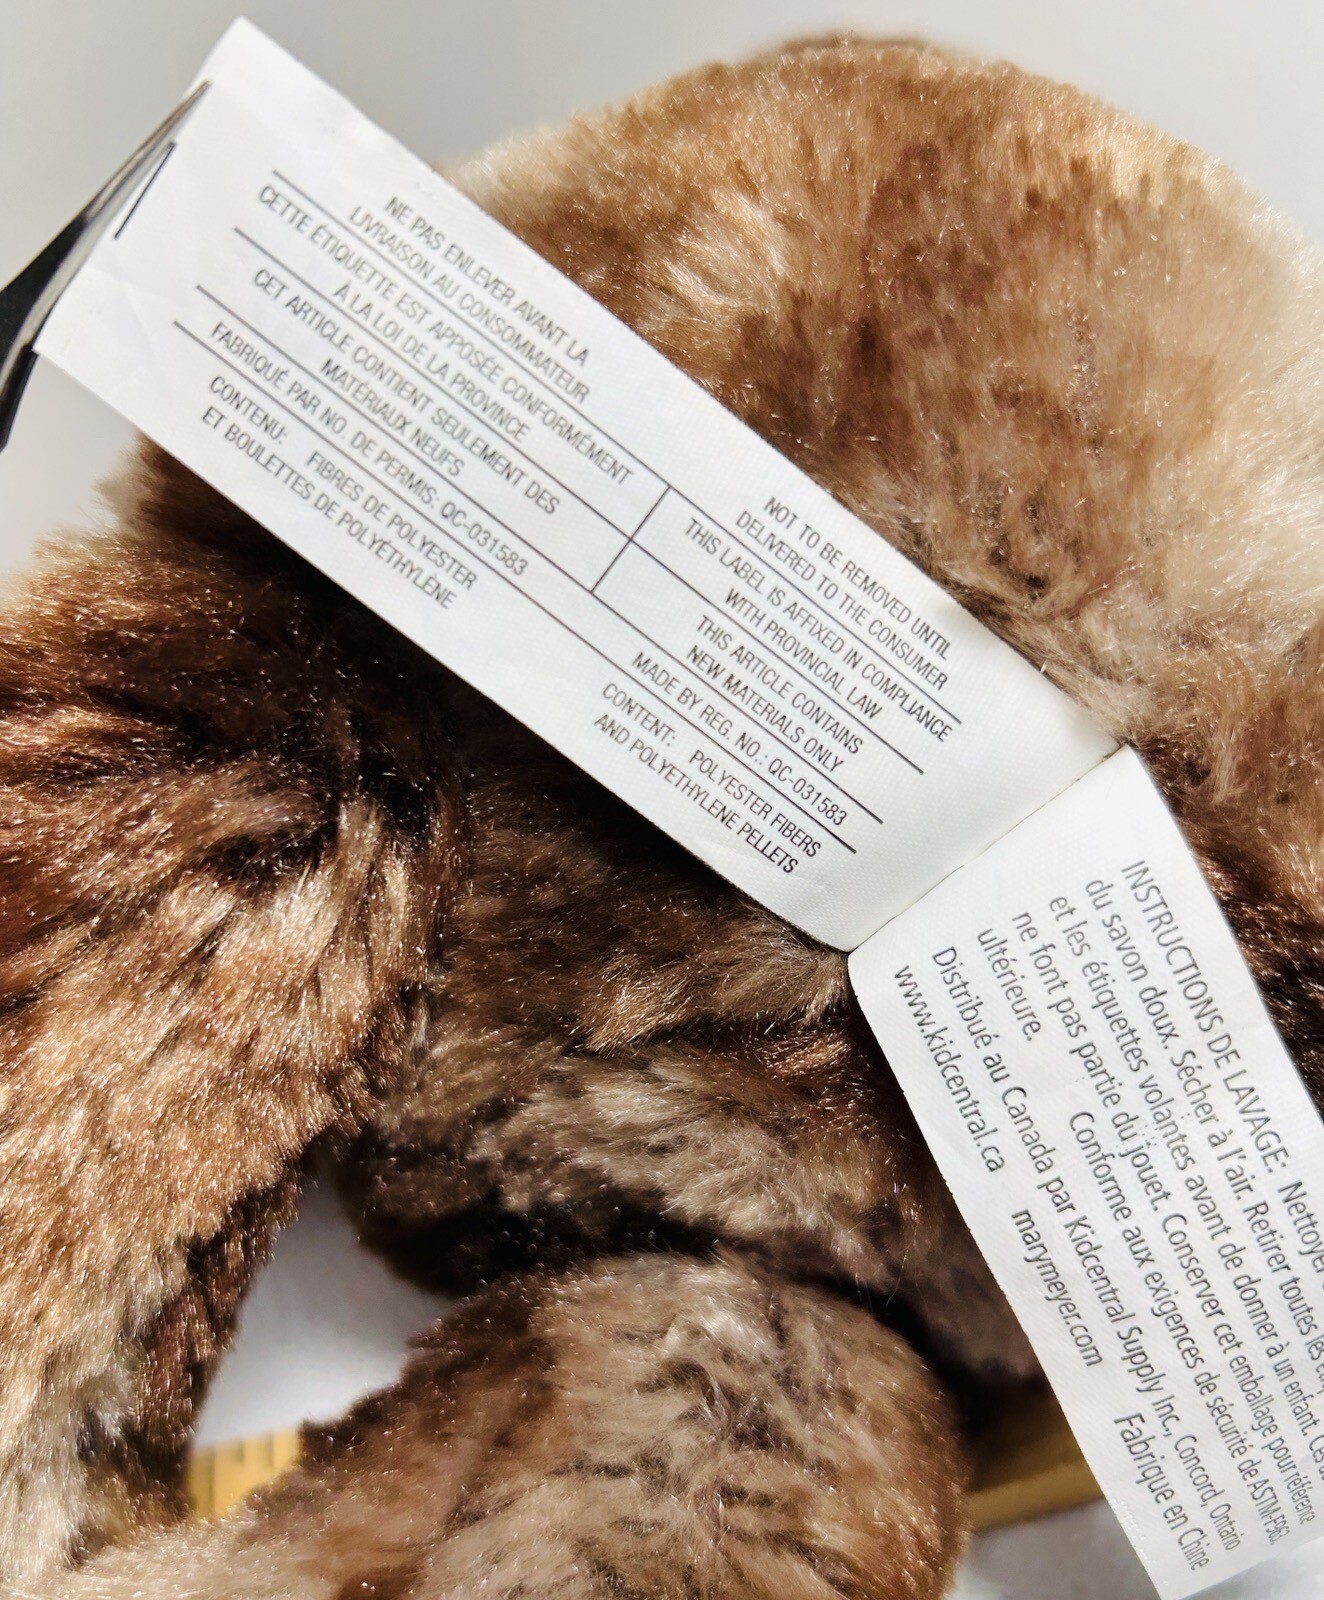 NE PAS ENLEVER AVANT LA
LIVRAISON AU CONSOMMATEUR
CETTE ÉTIQUETTE EST APPOSÉE CONFORMÉMENT
À LA LOI DE LA PROVINCE
CET ARTICLE CONTIENT SEULEMENT DES
MATÉRIAUX NEUFS
FABRIQUÉ PAR NO. DE PERMIS: QC-031583
CONTENU: FIBRES DE POLYESTER
ET BOULETTES DE POLYÉTHYLÈNE
NOT TO BE REMOVED UNTIL
DELIVERED TO THE CONSUMER
THIS LABEL IS AFFIXED IN COMPLIANCE
WITH PROVINCIAL LAW
THIS ARTICLE CONTAINS
NEW MATERIALS ONLY
MADE BY REG. NO.: QC-031583
CONTENT: POLYESTER FIBERS
AND POLYETHYLENE PELLETS
INSTRUCTIONS DE LAVAGE: Nettoyer
du savon doux. Sécher à l'air. Retirer toutes les
et les étiquettes volantes avant de donner à un enfant.
ne font pas partie du jouet. Conserver cet emballage pour référence
ultérieure. Conforme aux exigences de sécurité de ASTM-F963.
Distribué au Canada par Kidcentral Supply Inc., Concord, Ontario
www.kidcentral.ca marymeyer.com Fabrique en Chine